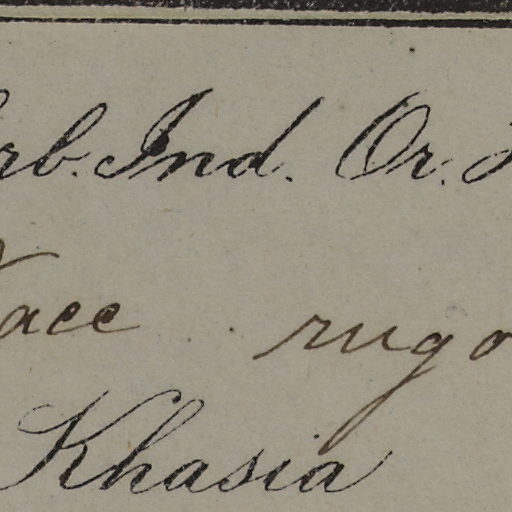 rb. Ind. Or. H
Vacc . . rugo
Khasia